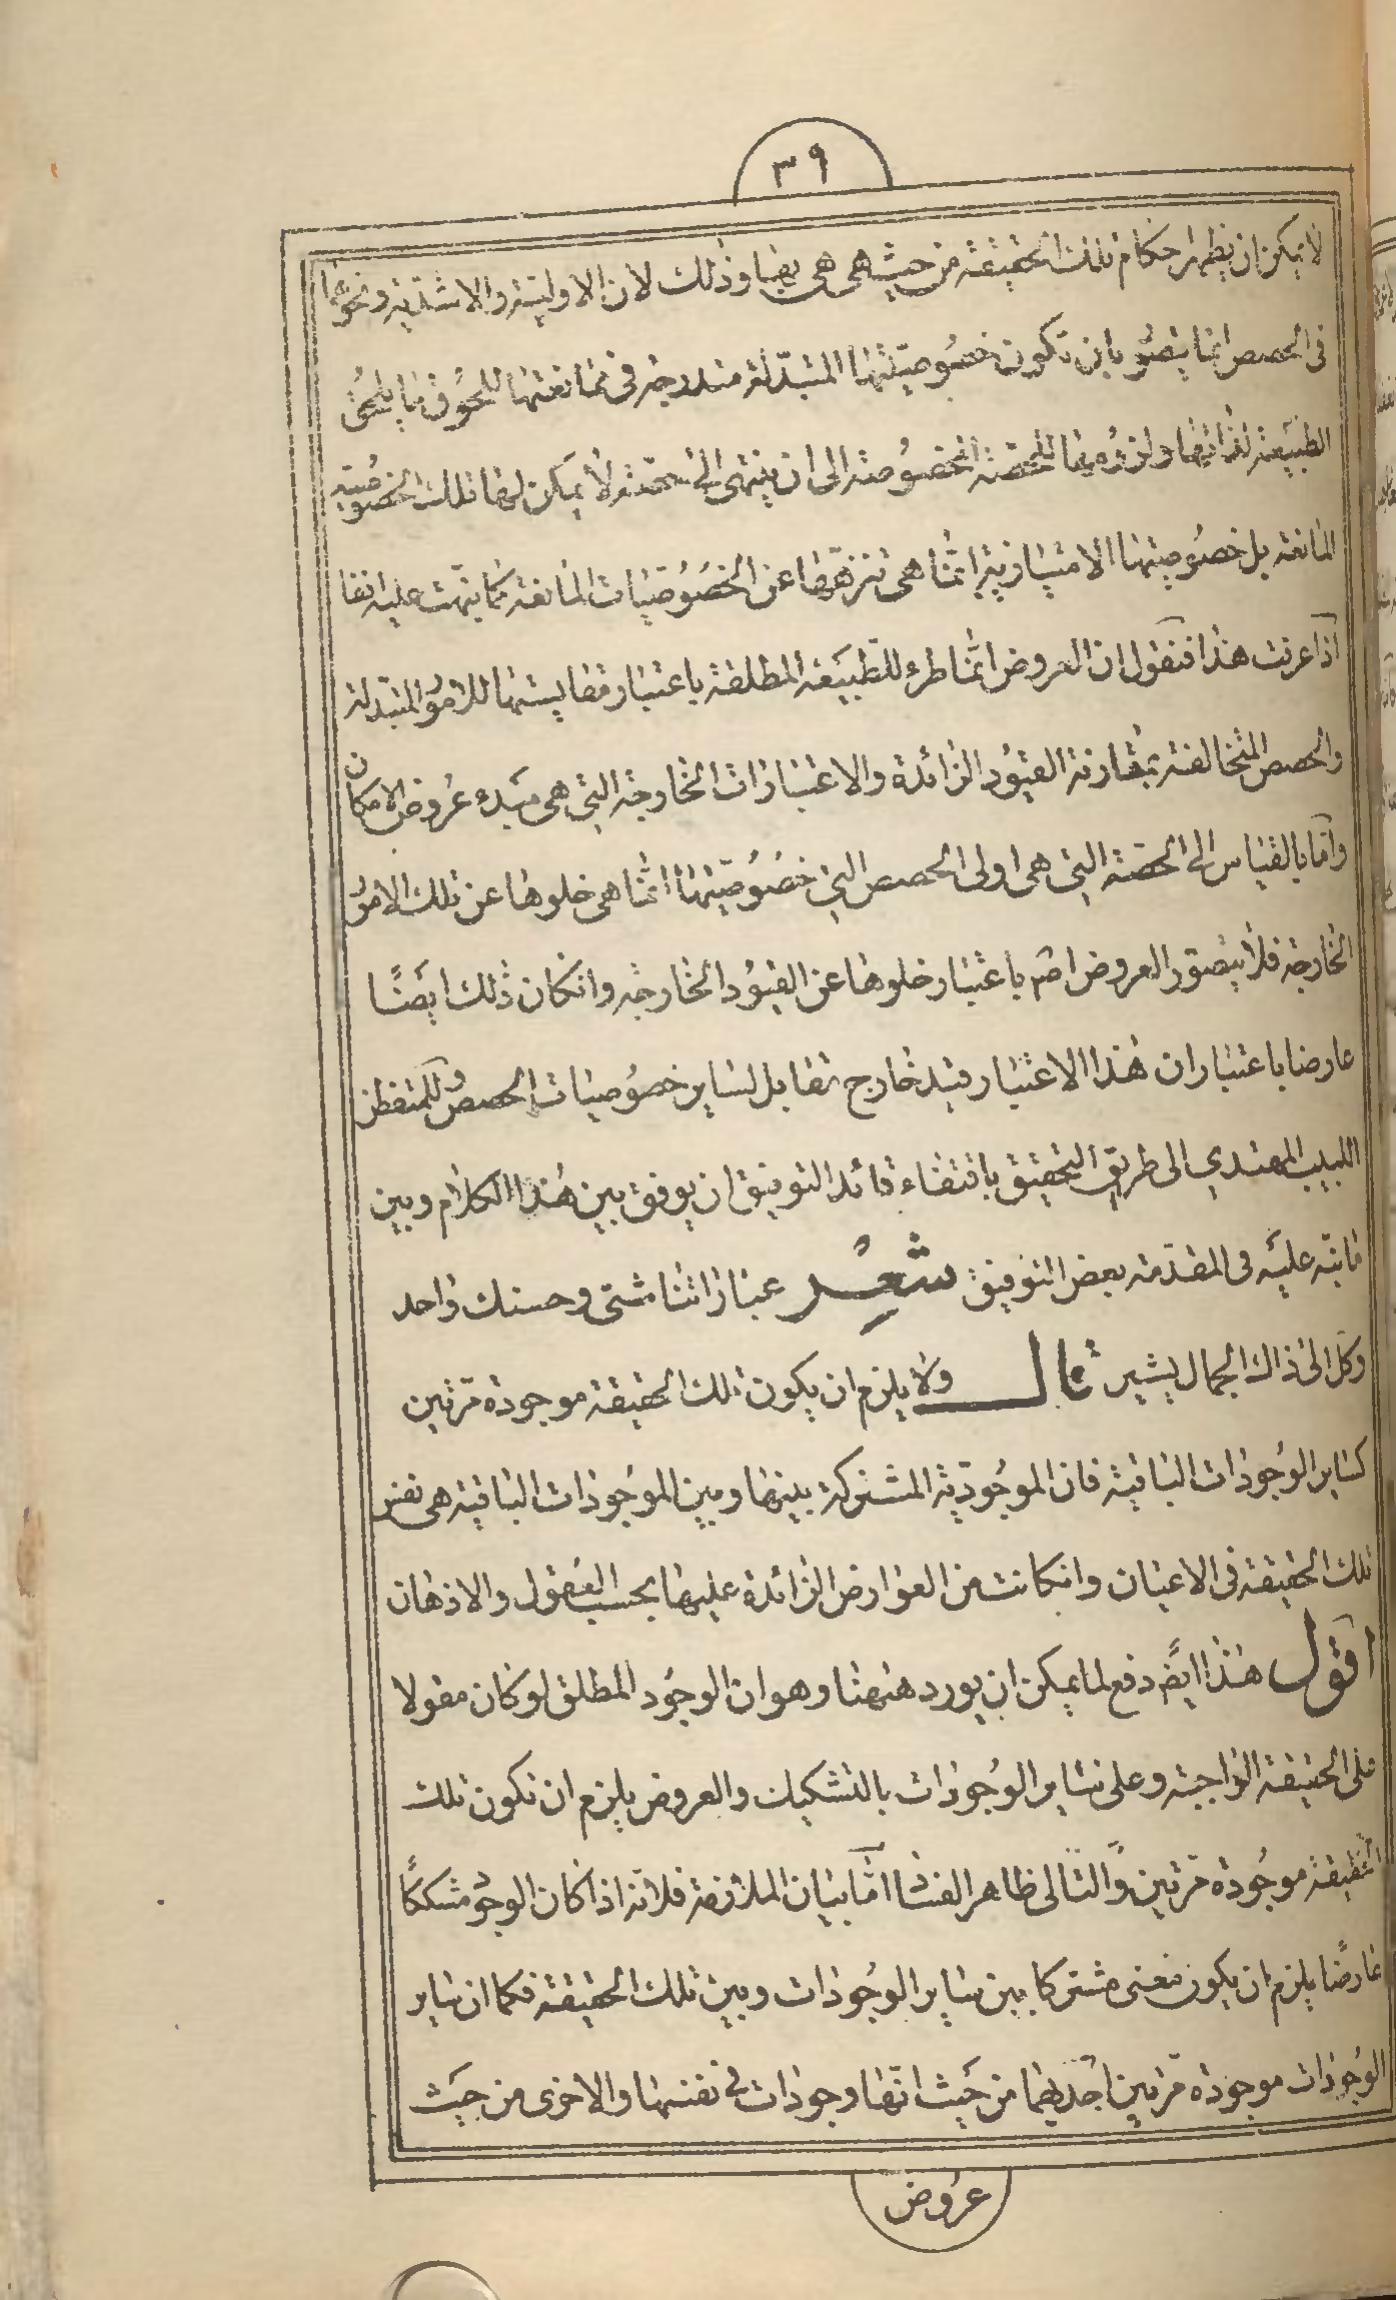 ٣٩
لا يمكن ان يظهر احكام تلك الحقيقة من حيث هى هى بها وذلك لان الاولية والاشدية ونحوهما
فى الحصص انما يتصور بان تكون خصوصيتها المتبدلة مندرجة فى ممانعتها للحوق ما يلحق
الطبيعة لذاتها ولزومها للحصة المخصوصة الى ان ينتهى الى حصة لا يمكن لها تلك الخصوصية
المانعة بل خصوصيتها الامتيازية انما هى تنزهها عن الخصوصيات المانعة كما نبهت عليه انفا
اذا عرفت هذا فنقول ان العروض انما طرء للطبيعة المطلقة باعتبار مقايستها للامور المتبدلة
والحصص المتخالفة بمقارنة القيود الزائدة والاعتبارات الخارجة التى هى مبدء عروض الامكان
واما بالقياس الى الحصة التى هى اولى الحصص التى خصوصيتها انما هى خلوها عن تلك الامور
الخارجة فلا يتصور العروض اصم باعتبار خلوها عن القيود الخارجة وانكان ذلك ايضًا
عارضا باعتبار ان هذا الاعتبار قيد خارج تقابل لساير خصوصيات الحصص وللمتفطن
اللبيب المهتدي الى طريق التحقيق باقتفاء قائد التوفيق ان يوفق بين هذا الكلام وبين
ما نبّه عليه فى المقدمة بعض التوفيق شعر عباراتنا شتى وحسنك واحد
وكل الى ذاك الجمال يشير قال ولا يلزم ان يكون تلك الحقيقة موجودة مرّتين
كساير الوجودات الباقية فان الموجودية المشتركة بينها وبين الموجودات الباقية هى نفس
تلك الحقيقة فى الاعيان وانكانت من العوارض الزائدة عليها بحسب العقول والاذهان
اقول هذا ايضً دفع لما يمكن ان يورد ههنا وهو ان الوجود المطلق لو كان مقولا
على الحقيقة الواجبة وعلى ساير الوجودات بالتشكيك والعروض يلزم ان تكون تلك
الحقيقة موجودة مرّتين والتالى ظاهر الفساد امّا بيان الملازمة فلانه اذا كان الوجود مشككًا
عارضًا يلزم ان يكون معنى مشتركا بين ساير الوجودات وبين تلك الحقيقة فكما ان ساير
الوجودات موجودة مرّتين احديهما من حيث انّها وجودات فى نفسها والاخرى من حيث
عروض